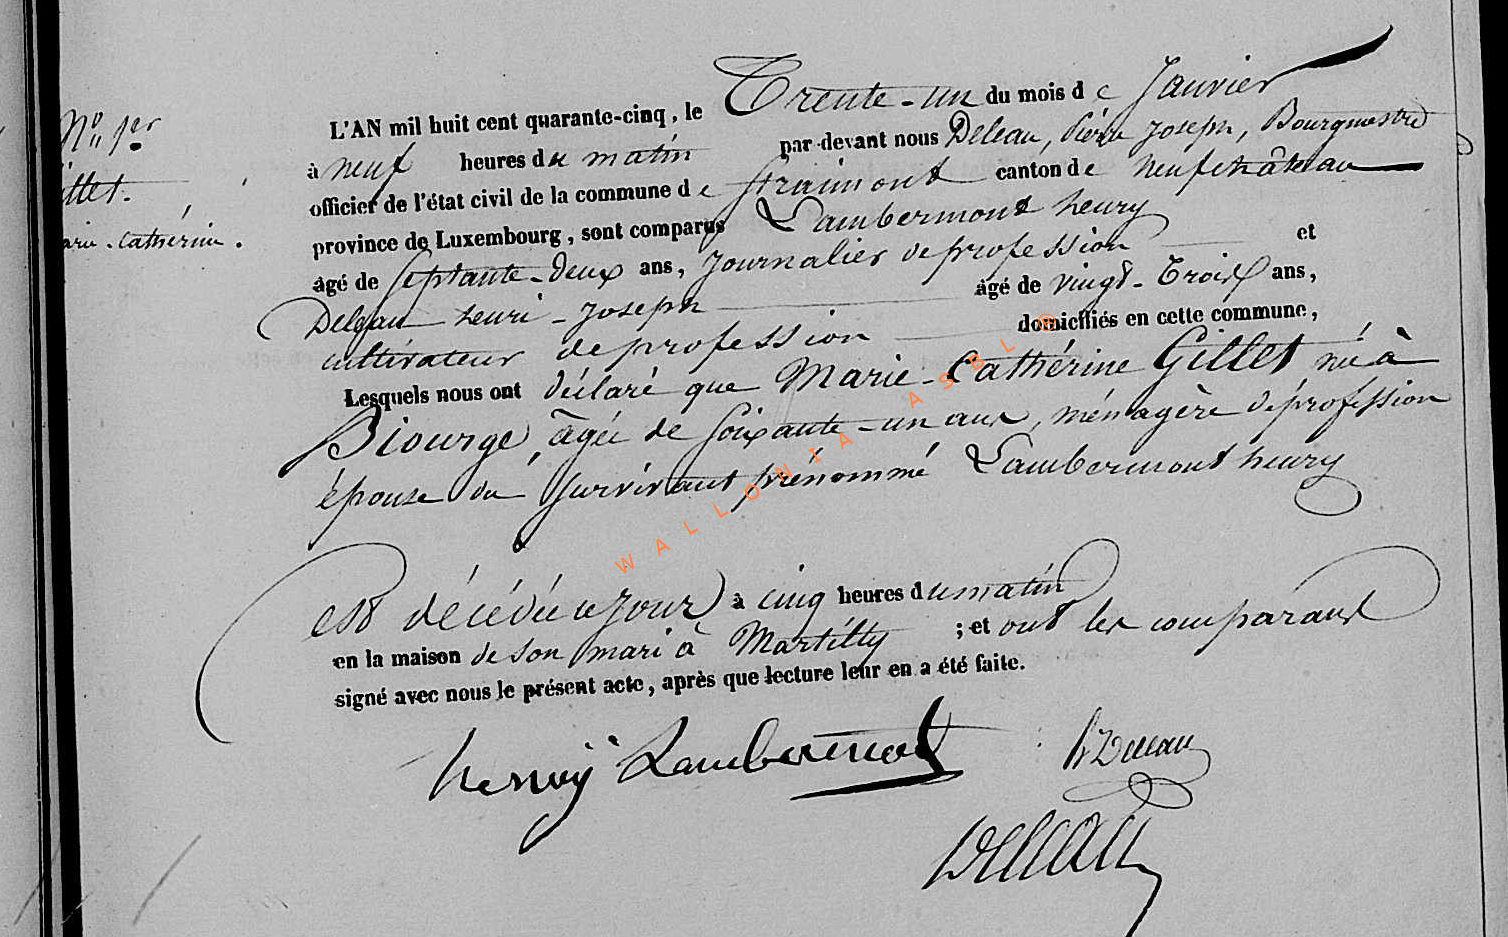 N° 1er
illet.
arie-Cathérine.
L'AN mil huit cent quarante-cinq, le Trente-un du mois de Janvier
à neuf heures du matin par-devant nous Deleau, Pierre Joseph, Bourgmestre
officier de l'état civil de la commune de Straimont canton de neufchâteau
province de Luxembourg, sont comparus Lambermont henry
âgé de septante-deux ans, Journalier de profession et
Deleau henri-Joseph âgé de vingt-Trois ans,
cultivateur de profession domiciliés en cette commune,
Lesquels nous ont déclaré que Marie-Cathérine Gillet né à
Biourge, âgée de soixante-un ans, ménagère de profession
épouse du survivant prénommé Lambermont henry
est décédée ce jour à cinq heures du matin
en la maison de son mari à Martilly ; et ont les comparants
signé avec nous le présent acte, après que lecture leur en a été faite.
henry Lambermont
h Deleau
Deleau
WALLONIA ASBL ©